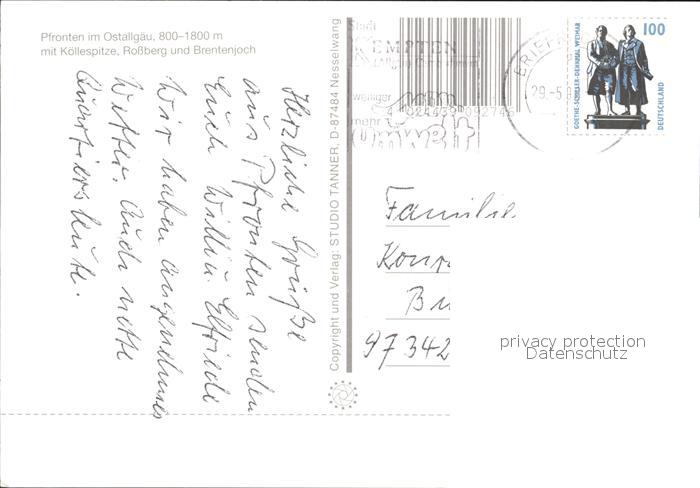 Pfronten im Ostallgäu, 800–1800 m
mit Köllespitze, Roßberg und Brentenjoch
Herzliche Grüße
aus Pfronten senden
Euch Willi u. Elfriede
Wir haben angenehmes
Wetter. Auch nette
Quartiersleute.
Copyright und Verlag: STUDIO TANNER, D-87484 Nesselwang
Stadt
KEMPTEN
weniger
mehr
Umwelt
BRIEF
29.-5.9
GOETHE-SCHILLER-DENKMAL WEIMAR
100
DEUTSCHLAND
Familie
97342
privacy protection
Datenschutz